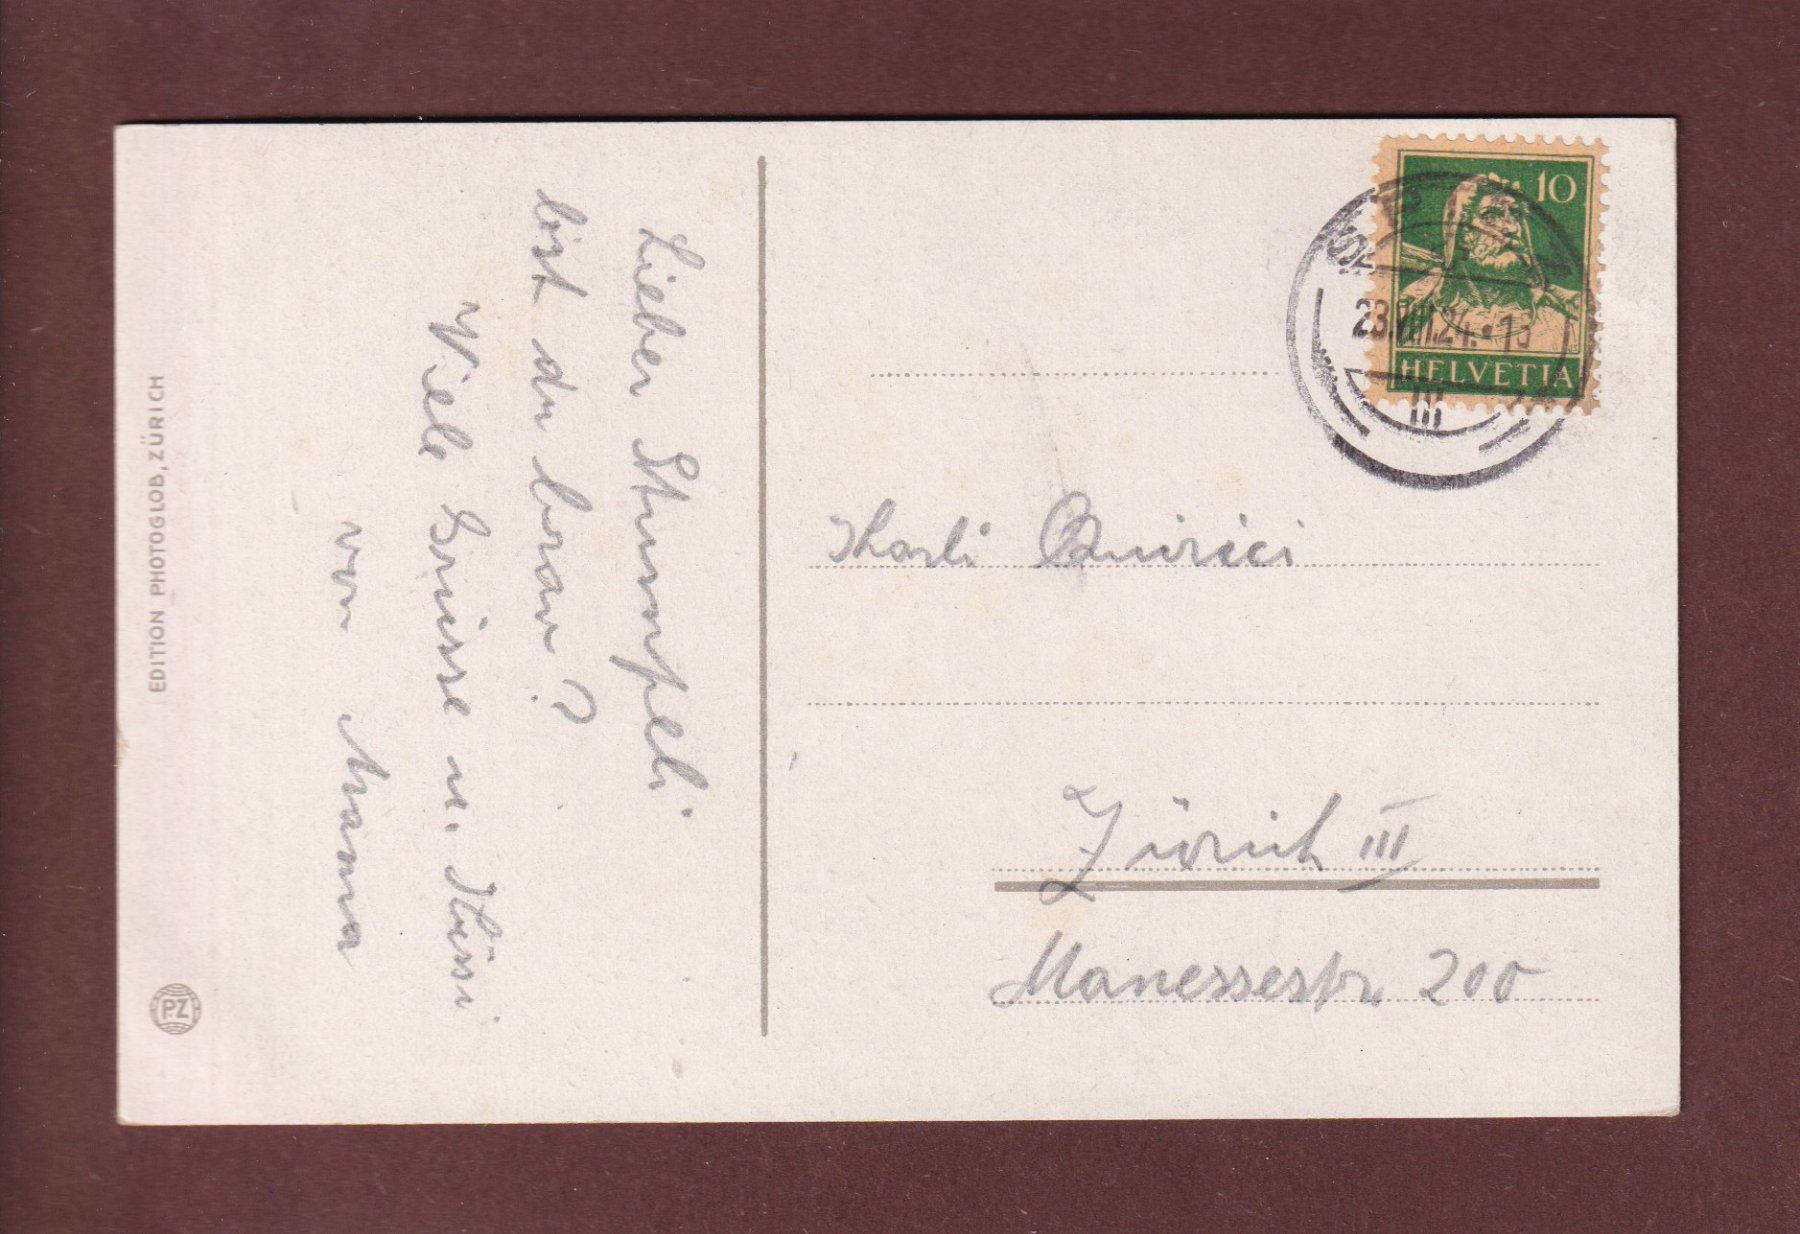 Lieber Stumpeli
bist du brav?
Viele Grüsse u. Küssi
von Mama
10
HELVETIA
23.VII.24.
III
Karli Quirici
Zürich III
Manessestr. 200
EDITION PHOTOGLOB, ZÜRICH
PZ